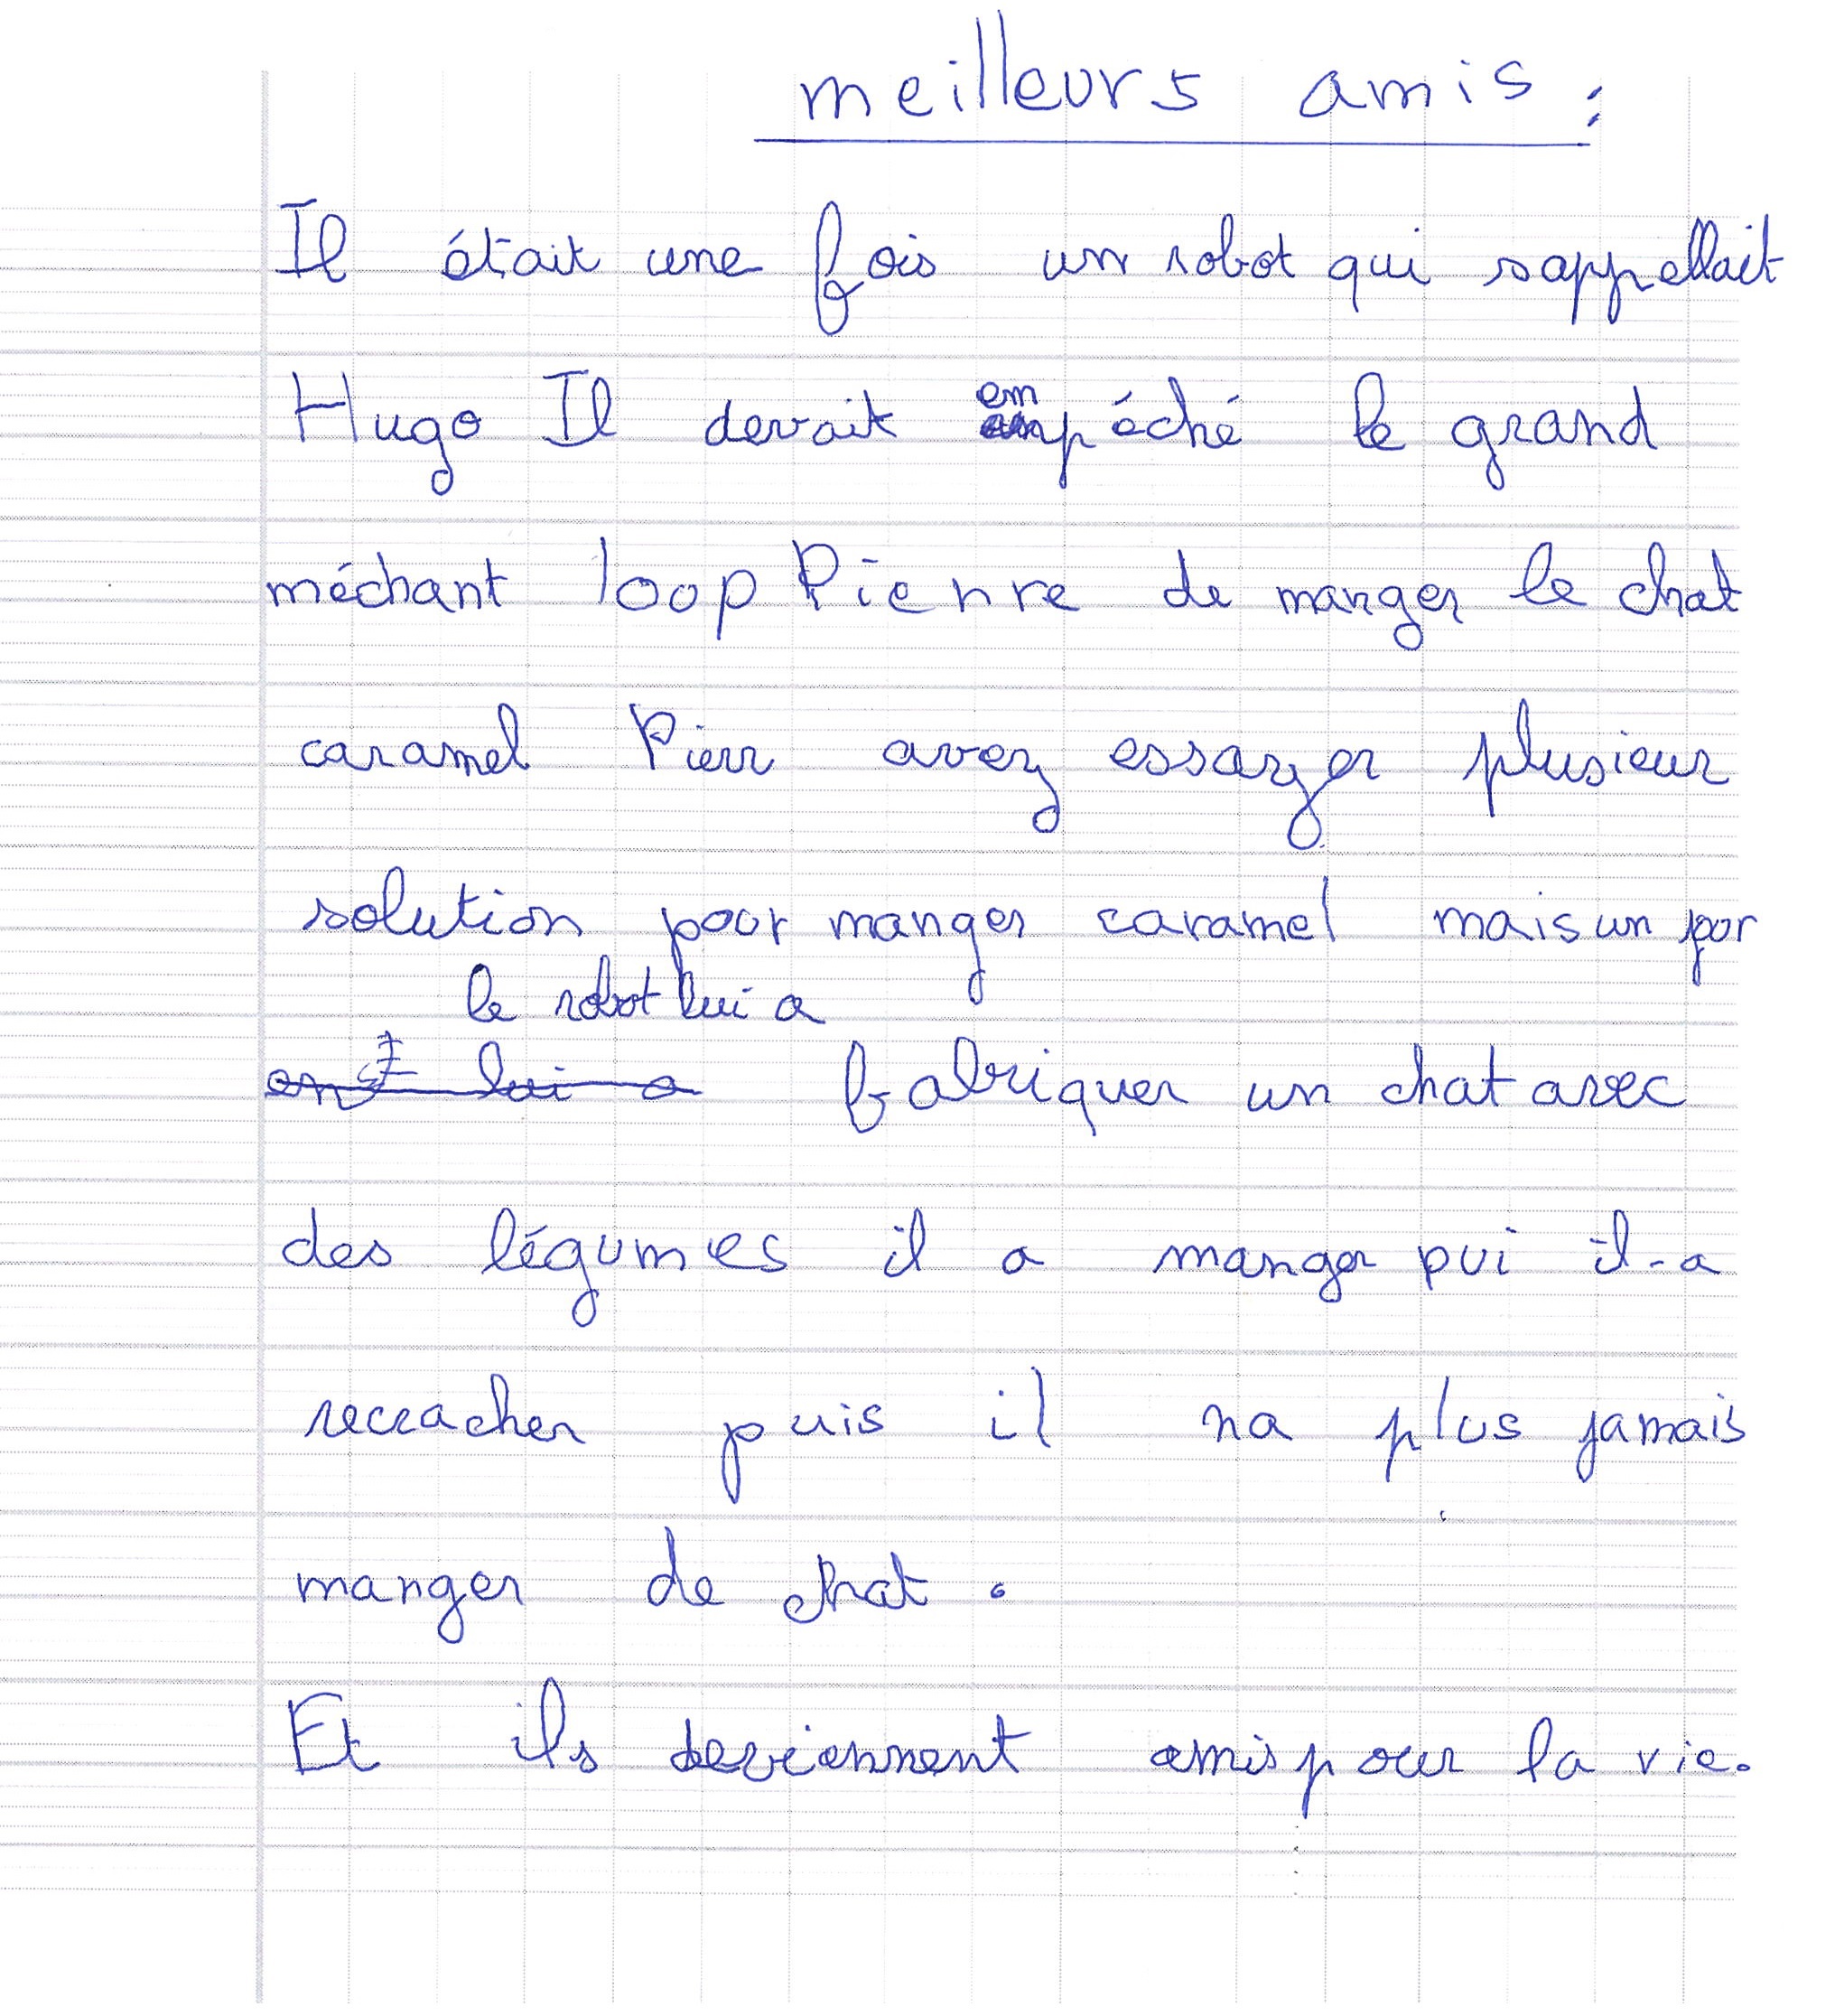 meilleurs amis :
Il était une fois un robot qui sappellait
Hugo Il devait empéché le grand
méchant loop Pienre de manger le chat
caramel Pierr avez essayer plusieur
solution pour manger caramel mais un por
le robot lui a
fabriquer un chat avec
des légumes il a manger pui il-a
recracher puis il na plus jamais
manger de chat.
Et ils deviennent amis pour la vie.